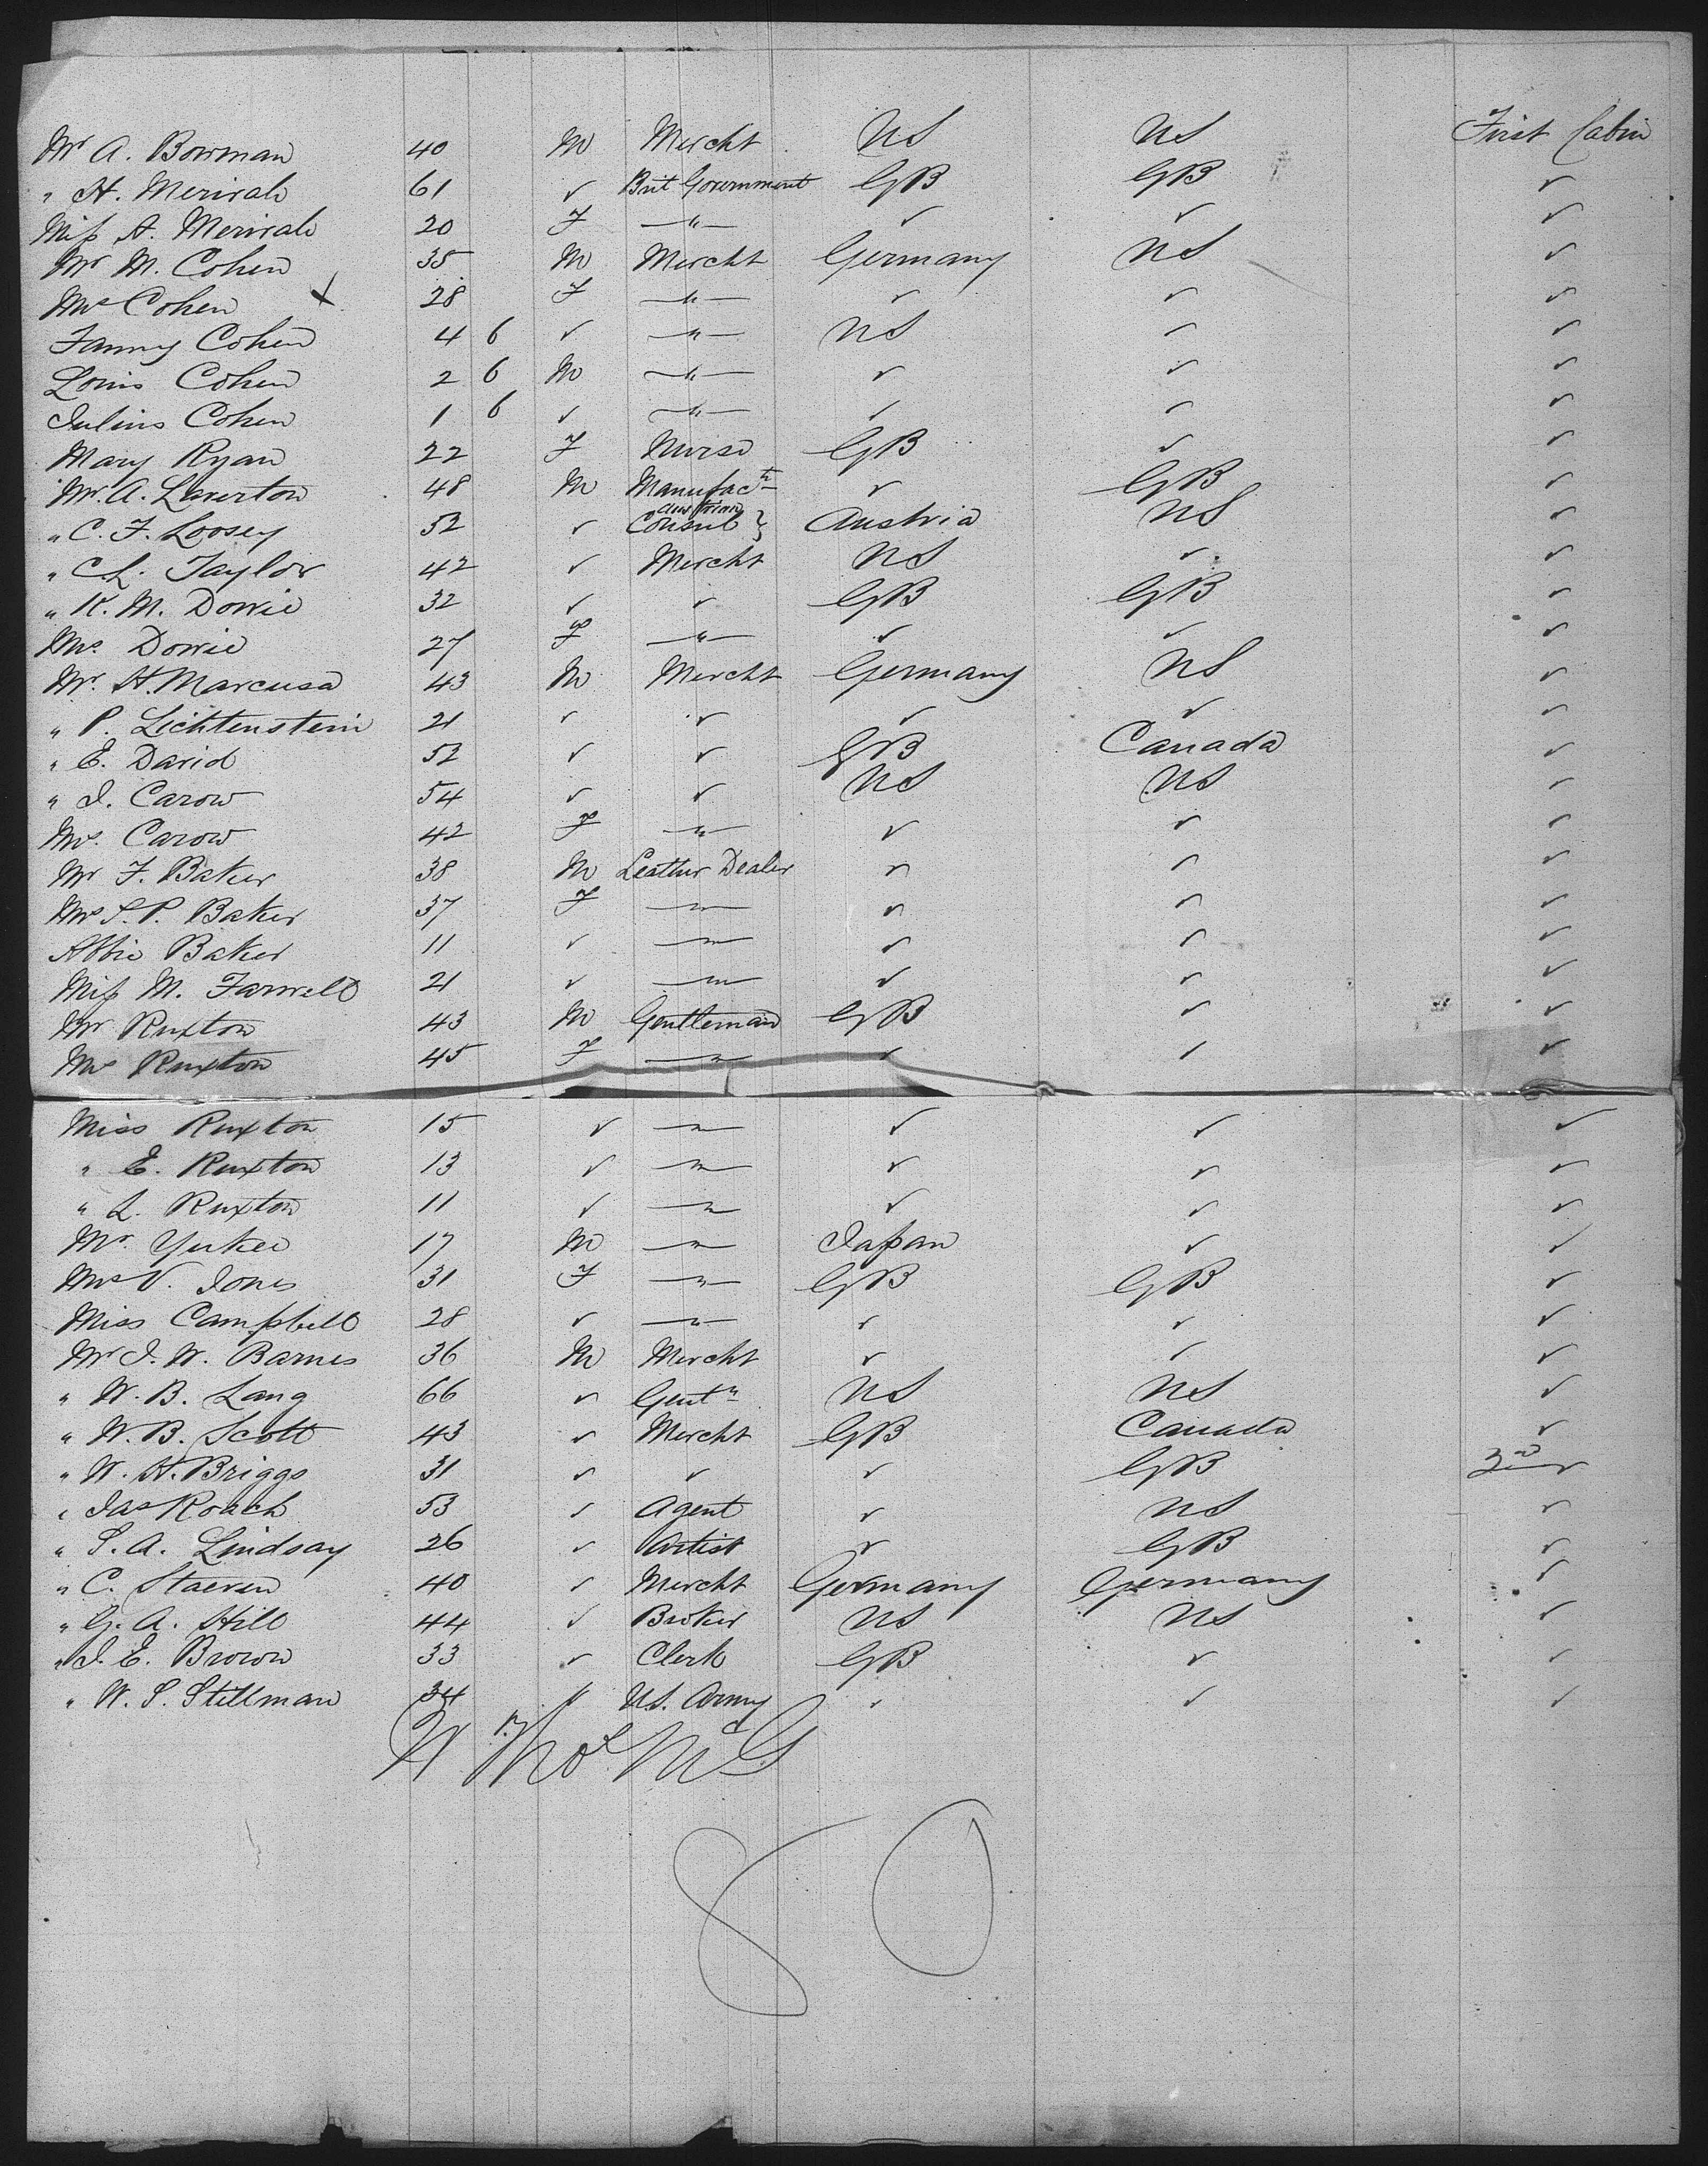 Mr A. Bowman 40 M Mercht US US First Cabin
" H. Merivale 61 ✓ Brit Government GB GB ✓
Miss A. Merivale 20 F —"— ✓ ✓ ✓
Mr M. Cohen 35 M Mercht Germany US ✓
Mrs Cohen x 28 F —"— ✓ ✓ ✓
Fanny Cohen 4 6 ✓ —"— US ✓ ✓
Louis Cohen 2 6 M —"— ✓ ✓ ✓
Julius Cohen 1 6 ✓ —"— ✓ ✓ ✓
Mary Ryan 22 F Nurse GB ✓ ✓
Mr. A. Laverton 48 M Manufactr ✓ GB ✓
" C. F. Loosey 52 ✓ Austrian Consul } Austria US ✓
" C.L. Taylor 42 ✓ Mercht US ✓ ✓
" K. M. Dowie 32 ✓ ✓ GB GB ✓
Mrs. Dowie 27 F —"— ✓ ✓ ✓
Mr. H. Marcusa 43 M Mercht Germany US ✓
" P. Lichtenstein 21 ✓ ✓ ✓ ✓ ✓
" E. David 52 ✓ ✓ GB Canada ✓
" I. Carow 54 ✓ ✓ US US ✓
Mrs. Carow 42 F —"— ✓ ✓ ✓
Mr F. Baker 38 M Leather Dealer ✓ ✓ ✓
Mrs S. P. Baker 37 F —"— ✓ ✓ ✓
Abbie Baker 11 ✓ —"— ✓ ✓ ✓
Miss M. Farwell 21 ✓ —"— ✓ ✓ ✓
Mr Ruxton 43 M Gentleman GB ✓ ✓
Mrs Ruxton 45 F —"— ✓ ✓ ✓
Miss Ruxton 15 ✓ —"— ✓ ✓ ✓
" E. Ruxton 13 ✓ —"— ✓ ✓ ✓
" L. Ruxton 11 ✓ —"— ✓ ✓ ✓
Mr. Yukei 17 M —"— Japan ✓ ✓
Mrs V. Jones 31 F —"— GB GB ✓
Miss Campbell 28 ✓ —"— ✓ ✓ ✓
Mr J. W. Barnes 36 M Mercht ✓ ✓ ✓
" W. B. Lang 66 ✓ Gentn US US ✓
" W. B. Scott 43 ✓ Mercht GB Canada ✓
" W. H. Briggs 31 ✓ ✓ ✓ GB 2nd ✓
" Jas Roach 53 ✓ Agent ✓ US ✓
" S. A. Lindsay 26 ✓ Artist ✓ GB ✓
" C. Staeven 40 ✓ Mercht Germany Germany ✓
" G. A. Hill 44 ✓ Broker US US ✓
" J. E. Brown 33 ✓ Clerk GB ✓ ✓
" W. S. Stillman 34 " U.S. Army ✓ ✓ ✓
McG
80